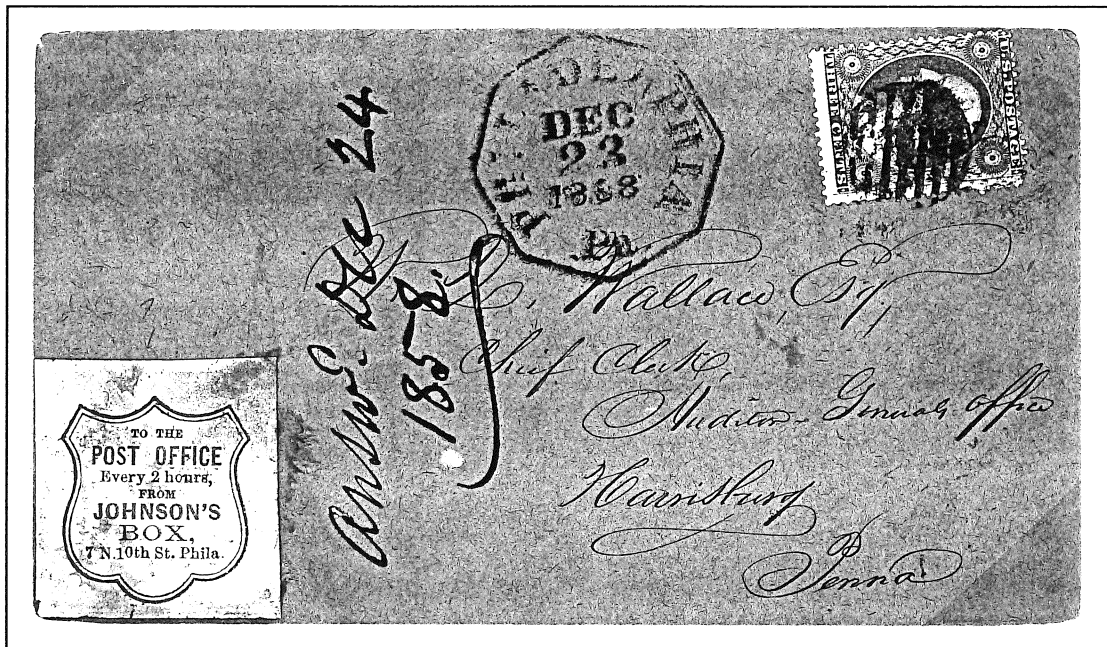 PHILADELPHIA
DEC
23
1858
Pa
U.S. POSTAGE
THREE CENTS
Answd. Dec 24
1858.
Wallace, Esq,
Chief Clerk,
Auditor Generals Office
Harrisburg
Penna
TO THE
POST OFFICE
Every 2 hours,
FROM
JOHNSON'S
BOX,
7 N. 10th St. Phila.